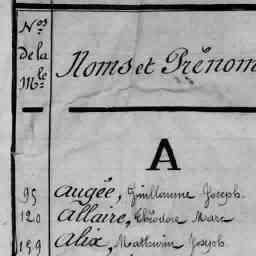 Nos
de la
Mle
Noms et Prénom
A
95 Augée, Guillaume Joseph.
120 Allaire, Théodore Marc
159 Alix, Mathurin Joseph.